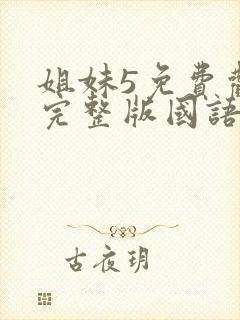 姐妹5免費
完整版國語
古夜玥